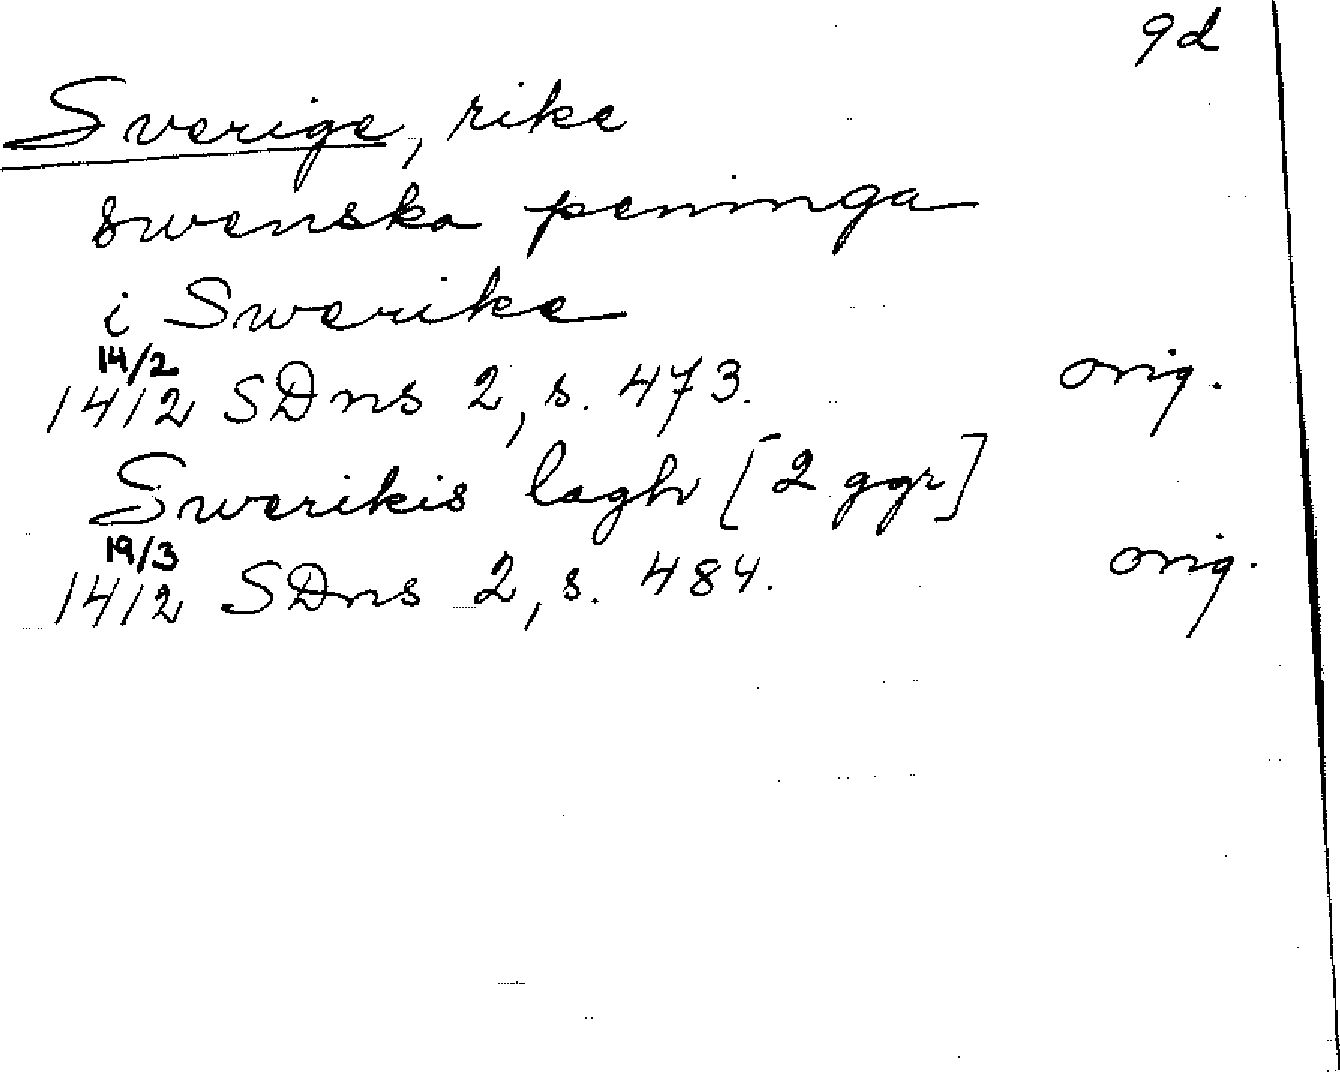 9d
Sverige, rike
swenska peninga
i Swerike
14/2
1412 SDns 2, s. 473. orig.
Swerikis lagh [2 ggr]
19/3
1412 SDns 2, s. 484. orig.